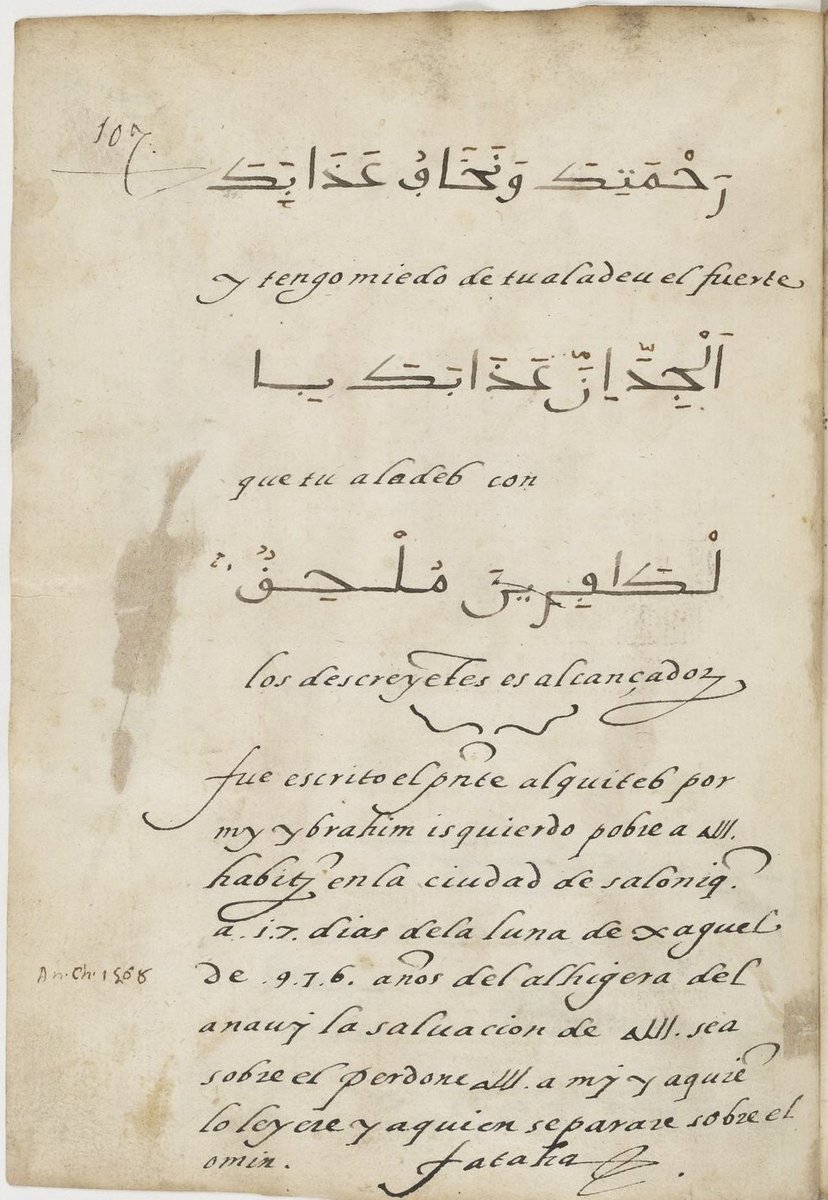 107
رَحْمَتِكَ وَنَخَافُ عَذَابَكَ
y tengo miedo de tu aladeu el fuerte
اَلْجِدَّ اِنَّ عَذَابَكَ بِا
que tu aladeb con
لْكَافِرِينَ مُلْحِقٌ
los descreyẽtes es alcançador
fue escrito el pñte alquiteb por
my ybrahim isquierdo pobre a الله.
habitz en la ciudad de saloniq.
a .17. dias dela luna de xaguel
de .9.7.6. años del alhigera del
anauj la saluacion de الله. sea
sobre el perdone الله. a mj y a quiẽ
lo leyere y a quien se parare sobre el
omin. fataha
An. Ch. 1568